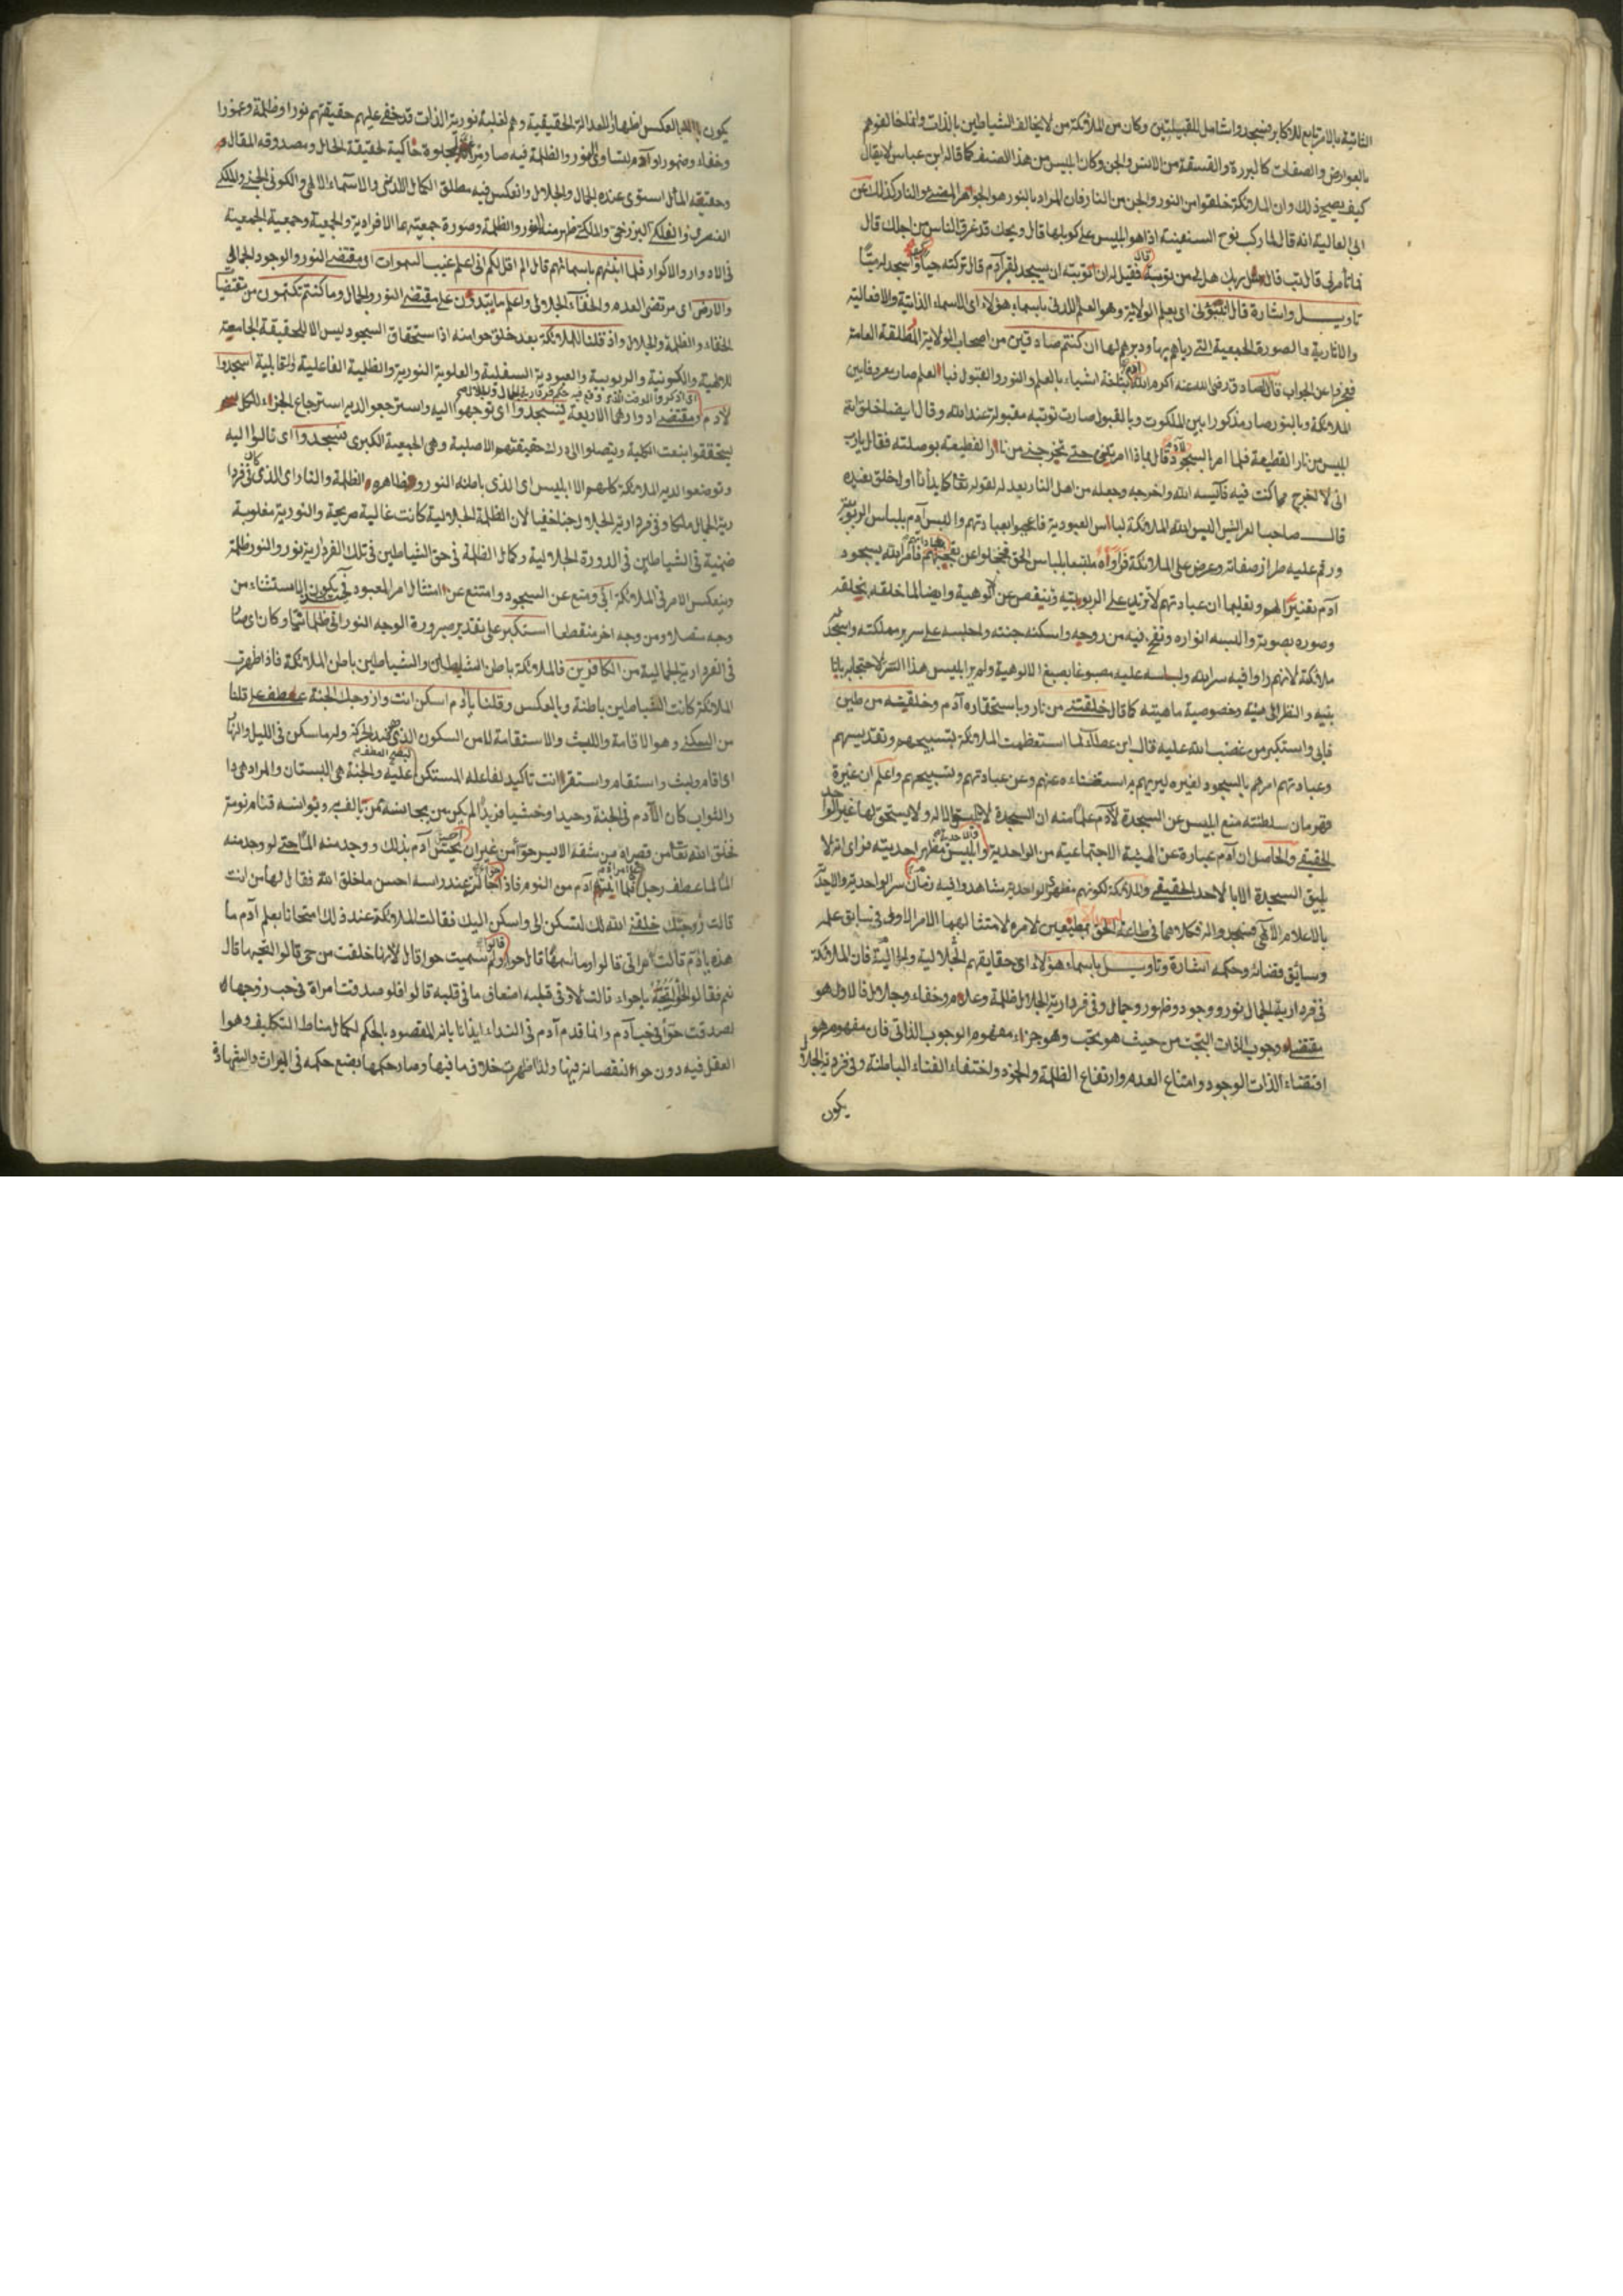 الثانية بالامر تابع للاكابر فسجدوا شامل للقبيلتين وكان من الملائكة من لا يخالف الشياطين بالذات وانما خالفوهم
بالعوارض والصفات كالبررة والفسقة من الانس والجن وكان ابليس من هذا الصنف كما قاله ابن عباس لا يقال
كيف يصح ذلك وان الملائكة خلقوا من النور والجن من النار فان المراد بالنور هو الجوهر المضئ والنار كذلك عن
ابى العالية انه قال لما ركب نوح السفينة اذا هو ابليس على كوثلها قال ويحك قد غرق الناس من اجلك قال
فما تأمرنى قال تب قال سل ربك هل لى من توبة فقيل له ان توبته ان يسجد لقبر آدم قال تركته حيا واسجد له ميتا
تاويل واشارة قال انبئونى اى بعلم الولاية وهو العلم اللدنى باسماء هؤلاء اى الاسماء الذاتية والافعالية
والآثارية والصورة الجمعية التى رباهم بها ودبرهم لها ان كنتم صادقين من اصحاب الولاية المطلقة العامة
فعجزوا عن الجواب قال الصادق رضى الله عنه اكرم الله بثلثة اشياء بالعلم والنور والقبول فبالعلم صار معروفا بين
الملائكة وبالنور صار مذكورا بين الملكوت وبالقبول صارت توبته مقبولة عند الله وقال ايضا خلق الله
ابليس من نار القطيعة فلما امر السجود قال بماذا امرتنى حتى تخرجنى من نار القطيعة بوصلته فقال يارب
انى لا اخرج مما كنت فيه فآيسه الله واخرجه وجعله من اهل النار بعد له لقوله تعالى كما بدأنا اول خلق نعيده
قال صاحب العرايس البس الله الملائكة لباس العبودية فاعجبوا بعبادتهم والبس آدم بلباس الربوبية
ورقم عليه طراز صفاته وعرض على الملائكة فرأوه ملتبسا بلباس الحق فخجلوا عن تعجبهم فامر الله بسجود
آدم تغييرا لهم وتعليما ان عبادتهم لا تزيد على الربوبية ولا ينقص عن الوهية وايضا لما خلقه بخلقه
وصوره بصورته والبسه انواره ونفخ فيه من روحه واسكنه جنته واجلسه على سرير مملكته واسجد له
ملائكته لانهم رأوا فيه سر الله ولباسه عليه مصبوغا بصبغ الالوهية ولم ير ابليس هذا السر لاحتجابه
بنيه والنظر الى هيئته وخصوصية ماهيته كما قال خلقتنى من نار وباستحقاره آدم وخلقيته من طين
فابى واستكبر من غضب الله عليه قال ابن عطاء لما استعظمت الملائكة بتسبيحهم وتقديسهم
وعبادتهم امرهم بالسجود لغيره ليريهم به استغناءه عنهم وعن عبادتهم وتسبيحهم واعلم ان غيرة
قهرمان سلطنته منع ابليس عن السجدة لآدم علما منه ان السجدة لا يليق الا له ولا يستحق لها غير الواحد
الحقيقى والحاصل ان آدم عبارة عن الهيئة الاجتماعية من الواحدية وابليس مظهر احديته فرأى انه لا
يليق السجدة الا بالاحد الحقيقى والملائكة لكونهم مظهر الواحدية شاهدوا فيه سر الواحدية والاحدية
بالاعلام الالهى فسجدوا له فكلاهما فى طاعة الحق مطيعين لامره لامتثالهما الامر الاولى فى سابق علمه
وسابق قضائه وحكمه اشارة وتاويل باسماء هؤلاء اى حقايقهم الجلالية والجمالية فان الملائكة
فى فردارية الجمال نور ووجود وظهور وجمال وفى فردارية الجلال ظلمة وعدم وخفاء وجلال فالاول هو
مقتضاء وجوب الذات البحت من حيث هو بحت وهو جزاء مفهوم الوجوب الذاتى فان مفهومه هو
اقتضاء الذات الوجود وامتناع العدم وارتفاع الظلمة والجود واختفاء الفناء الباطنة وفى فردارية الجلال
يكون
يكون بالعكس اظهارا للعدالة الحقيقية وهم لغلبة نورية الذات قد خفى عليهم حقيقتهم نورا وظلمة وعورا
وخفاء وظهورا وآدم لتساوى النور والظلمة فيه صار مرآة مجلوة حاكية لحقيقة الحال ومصدوقه المقال
وحقيقة المآل استوى عنده الجمال والجلال وانعكس فيه مطلق الكمال اللدنى والاسماء الالهى والكونى الجنى والملكى
العنصرى والفلكى البرزخى والملكى ظهر منه النور والظلمة وصورة جمعيتهما الافرادية والجمعية وجمعية الجمعية
فى الادوار والاكوار فلما انبئهم باسمائهم قال الم اقل لكم انى اعلم غيب السموات اى مقتضى النور والوجود الجمالى
والارض اى مرتضى العدم والخفاء الجلالى واعلم ما تبدون على مقتضى النور والجمال وما كنتم تكتمون من مقتضيا
الخفاء والظلمة والجلال واذ قلنا للملائكة بعد خلق حوا منه اذا ستحقاق السجود ليس الا للحقيقة الجامعة
للالهية والكونية والربوبية والعبودية السفلية والعلوية النورية والظلمية الفاعلية والقابلية اسجدوا
لآدم ومقتضى ادوارها الاربعة فسجدوا اى توجهوا اليه واسترجعوا لديه استرجاع الجزاء للكل
ليتحققوا بنعت الكلية ويتصلوا الى درك حقيقتهم الاصلية وهى الجمعية الكبرى فسجدوا اى تالوا اليه
وتوضعوا لديه الملائكة كلهم الا ابليس اى الذى باطنه النور وظاهره الظلمة والنار اى الذى كان فى فردا
رية الجمال ملكا وفى فردارية الجلال جنا خفيا لان الظلمة الجلالية كانت غالبة صريحة والنورية مغلوبة
ضمنية فى الشياطين فى الدورة الجلالية وكمال الظلمة فى حق الشياطين فى تلك الفردارية نور والنور ظلمة
وينعكس الامر فى الملائكة ابى ومنع عن السجود وامتنع عن امتثال امر المعبود فيكون الاستثناء من
وجه متصلا ومن وجه اخر منقطعا استكبر على تقدير صيرورة الوجه النورانى ظلمانيا وكان اى صار
فى الفردارية الجمالية من الكافرين فالملائكة باطن الشياطين والشياطين باطن الملائكة فاذا ظهرت
الملائكة كانت الشياطين باطنة وبالعكس وقلنا يا آدم اسكن انت وزوجك الجنة عطف على قلنا
من السكنى وهو الاقامة واللبث والاستقامة لا من السكون الذى ضد الحركة وله ما سكن فى الليل والنهار
اى اقام ولبث واستقام واستقر انت تاكيد لفاعله المستكن ليصح العطف عليه والجنة هى البستان والمراد هى دا
والثواب كان الآدم فى الجنة وحيدا وخشيا فريدا لم يكن من يجانسه ثمن يالف به ويوانسه فنام نومة
فخلق الله تعالى من قصيراه من شقه الايسر حوا من غير ان يحس آدم بذلك ووجد منه الما حتى لو وجد منه
الما لما عطف رجل على امراة فلما انتبه آدم من النوم فاذا حوا جالسة عند راسه احسن ما خلق الله فقال لها من انت
قالت زوجتك خلقنى الله لك لتسكن الى واسكن اليك فقالت الملائكة عند ذلك امتحانا بعلم آدم ما
هذه يا آدم قالت امراتى قالوا وما اسمها قال حوا قالوا ولم سميت حوا قال لانها خلقت من حى قالوا اتحبها قال
نعم فقالوا لحوا اتحبينه يا حواء قالت لا وفى قلبه اضعاف ما فى قلبه قالوا فلو صدقت امراة فى حب زوجها
لصدقت حوا فى حب آدم وانما قدم آدم فى النداء ايذانا بانه المقصود بالحكم لكمال مناط التكليف وهو
العقل فيه دون حواء لنقصانه فيها ولذا ظهرت خلاف ما فيها وصار حكمها بضع حكمه فى الميراث والشهادة